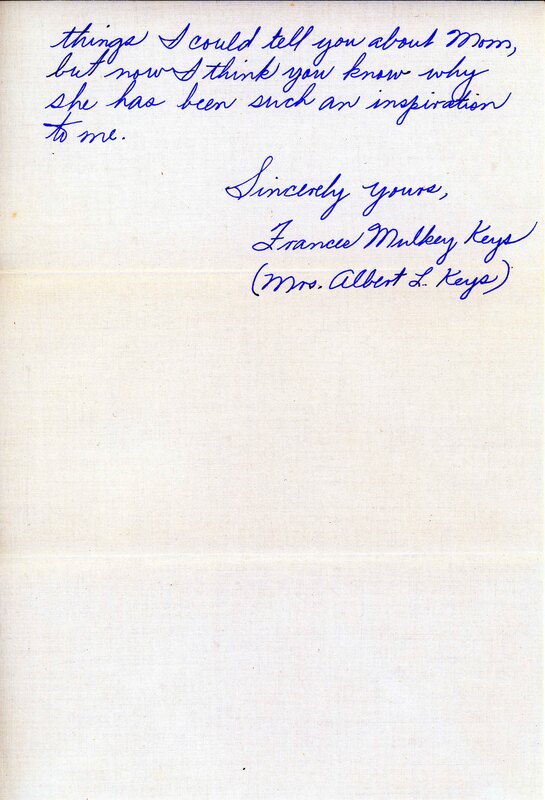 things I could tell you about Mom,
but now I think you know why
she has been such an inspiration
to me.
Sincerely yours,
Frances Mulkey Keys
(Mrs. Albert L. Keys)